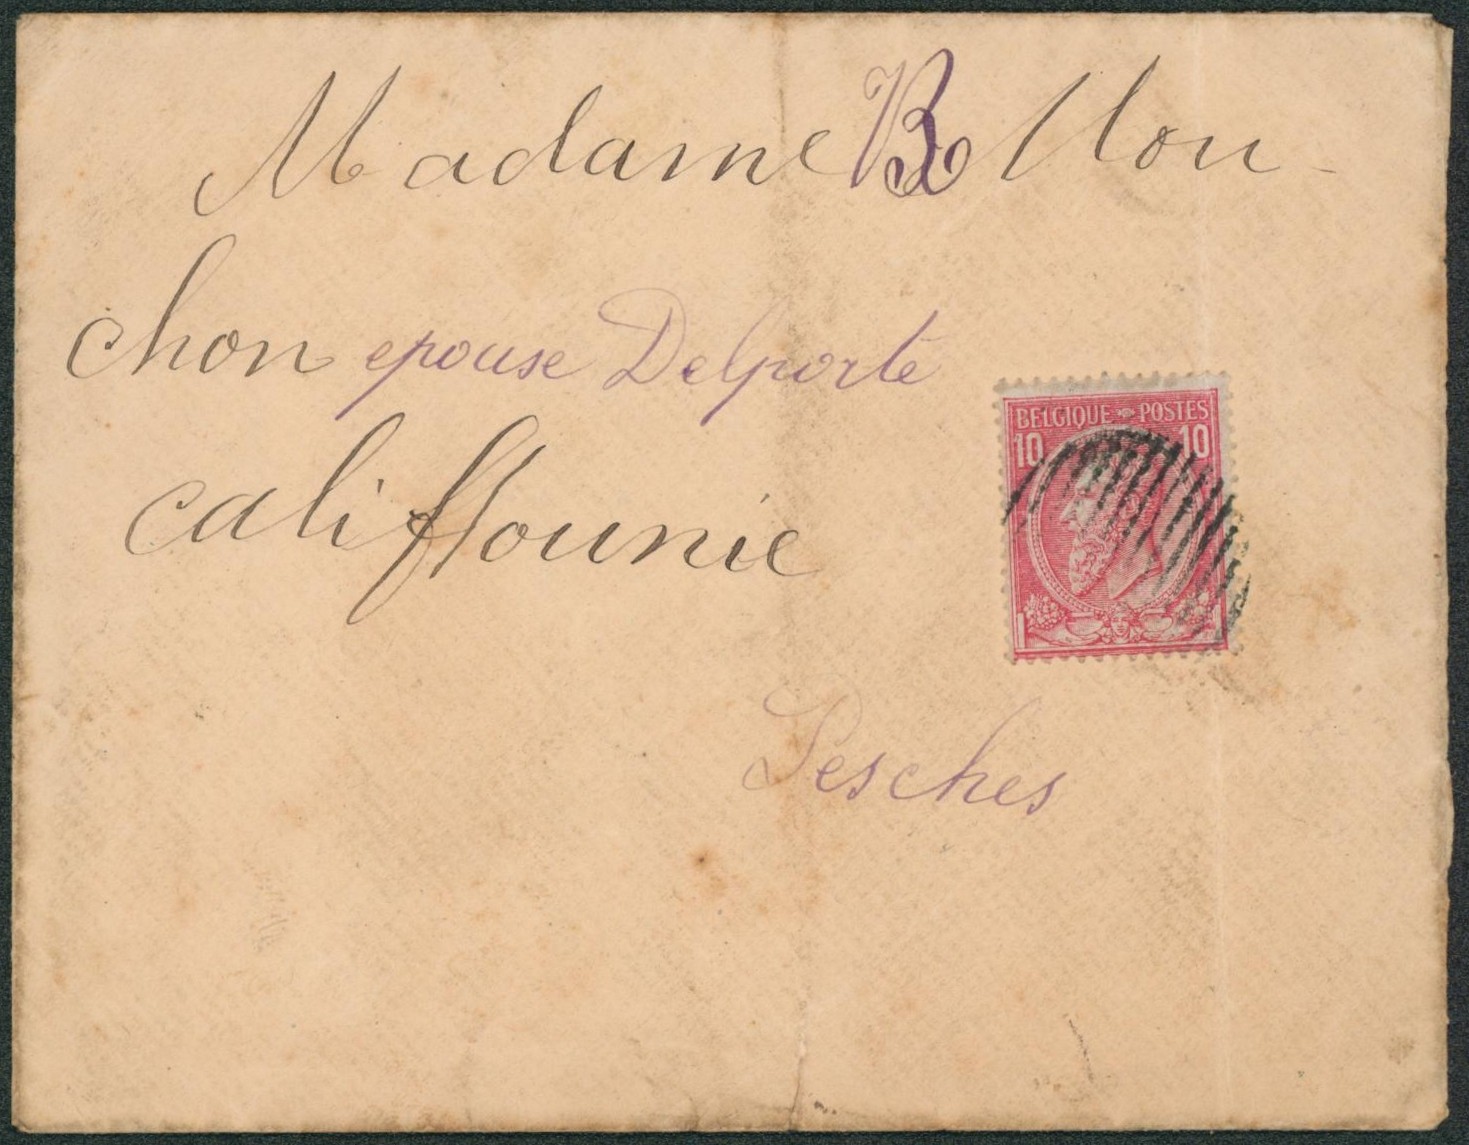 Madame B Mou-
chon epouse Delporte
califfounie
BELGIQUE POSTES
10 10
Lesches